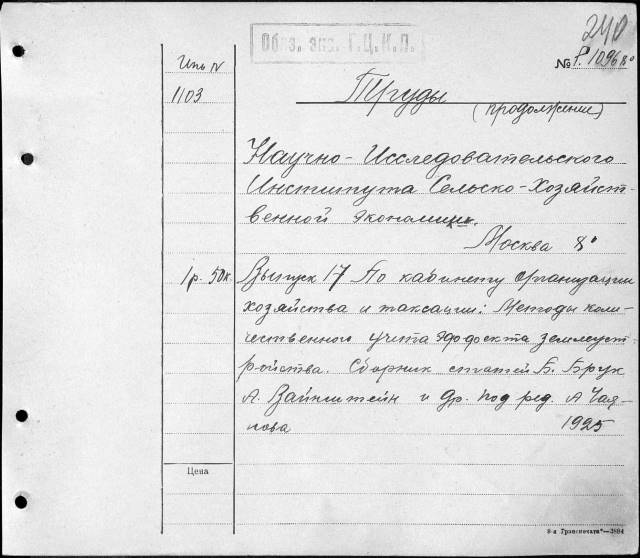 240
Обяз. экз. Г.Ц.К.П.
№ Р. 1096 8°
Инв IV
1103
Труды
(продолжение)
Научно-Исследовательского
Института Сельско-Хозяйст-
венной экономии.
Москва 8°
1р. 50к. Выпуск 17 По кабинету организации
хозяйства и таксации: Методы коли-
чественного учета эффекта землеуст-
ройства. Сборник статей Б. Брук
А. Вайнштейн и др. под ред. А Чая-
нова 1925
Цена